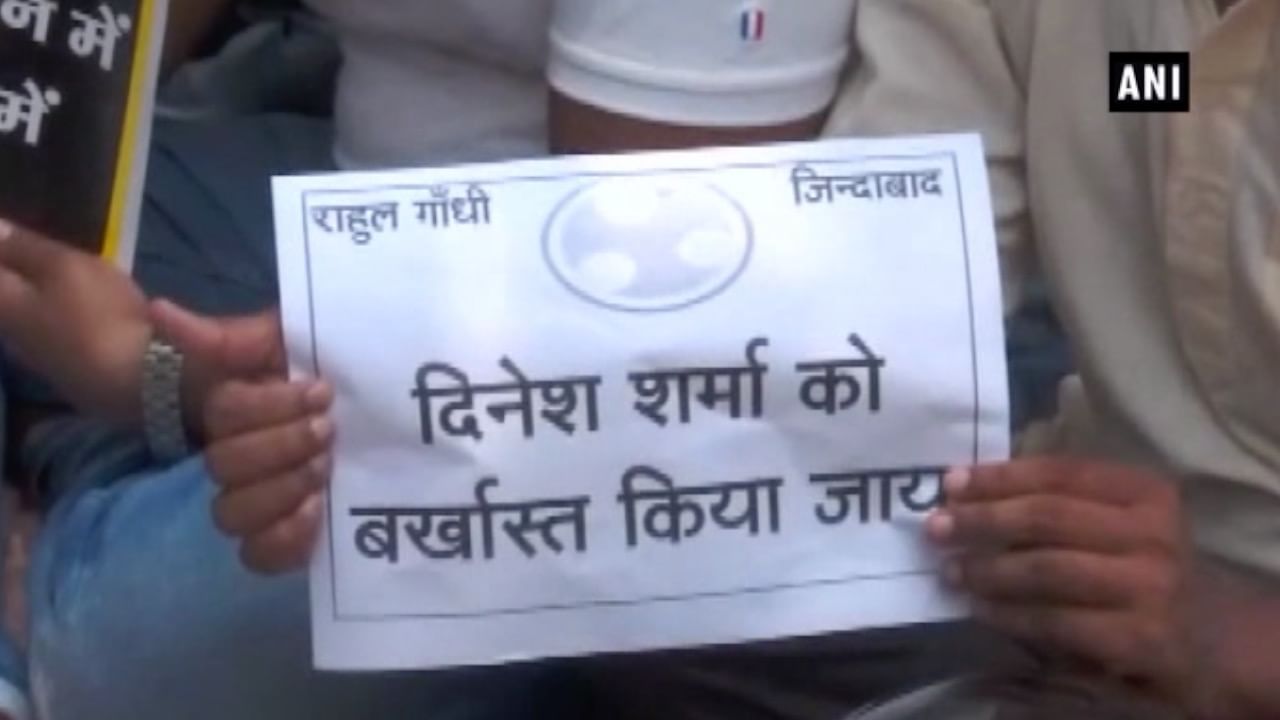 न में
में
ANI
राहुल गाँधी जिन्दाबाद
दिनेश शर्मा को
बर्खास्त किया जाय